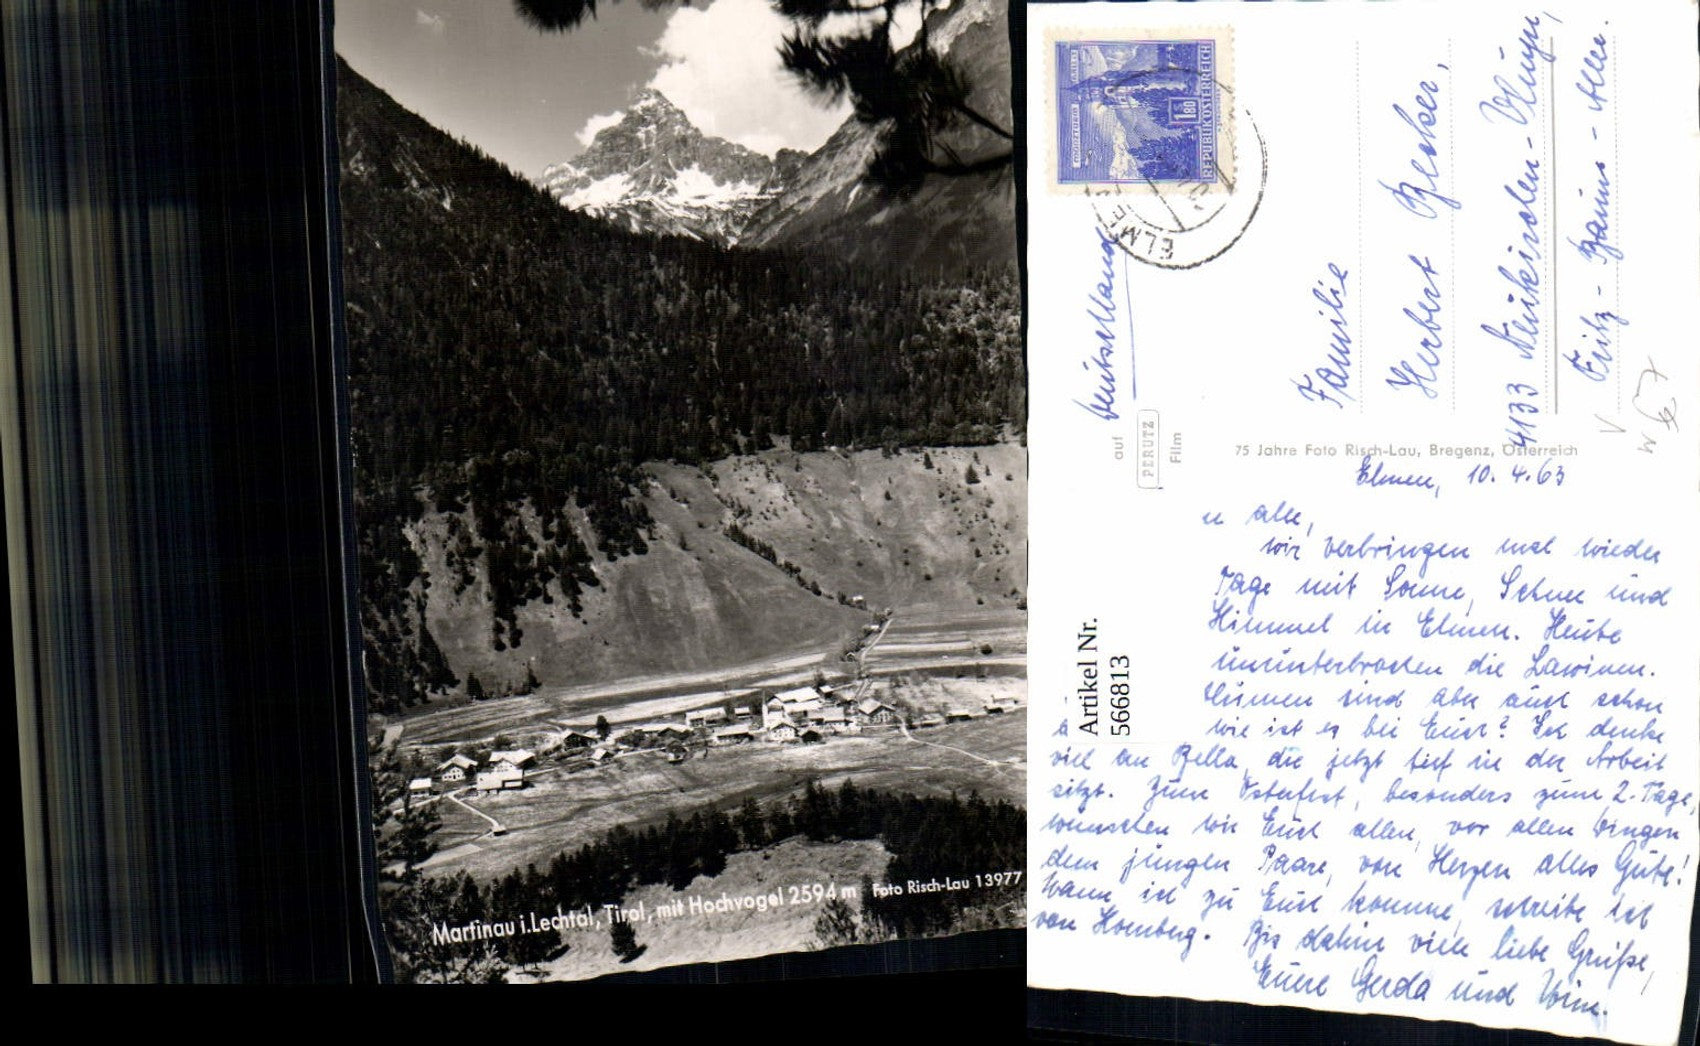 Martinau i. Lechtal, Tirol, mit Hochvogel 2594 m Foto Risch-Lau 13977
REPUBLIK ÖSTERREICH
1.80
ELMEN
Deutschland
Familie
Herbert
4133 Neukirchen-Vluyn,
Fritz-Baum-Allee.
auf
PERUTZ
Film
75 Jahre Foto Risch-Lau, Bregenz, Österreich
Artikel Nr.
566813
Elmen, 10.4.63
alle,
wir verbringen mal wieder
Tage mit Sonne, Schnee und
Himmel in Elmen. Heute
ununterbrochen die Lawinen.
Blumen sind aber auch schon
wie ist es bei Euch? Ich denke
viel an Bella, die jetzt tief in der Arbeit
sitzt. Zum Osterfest, besonders zum 2. Tage,
wünschen wir Euch allen, vor allen Dingen
dem jungen Paare, von Herzen alles Gute!
Wann ich zu Euch komme, schreibe ich
von Homberg. Bis dahin viele liebe Grüße,
Eure Gerda und